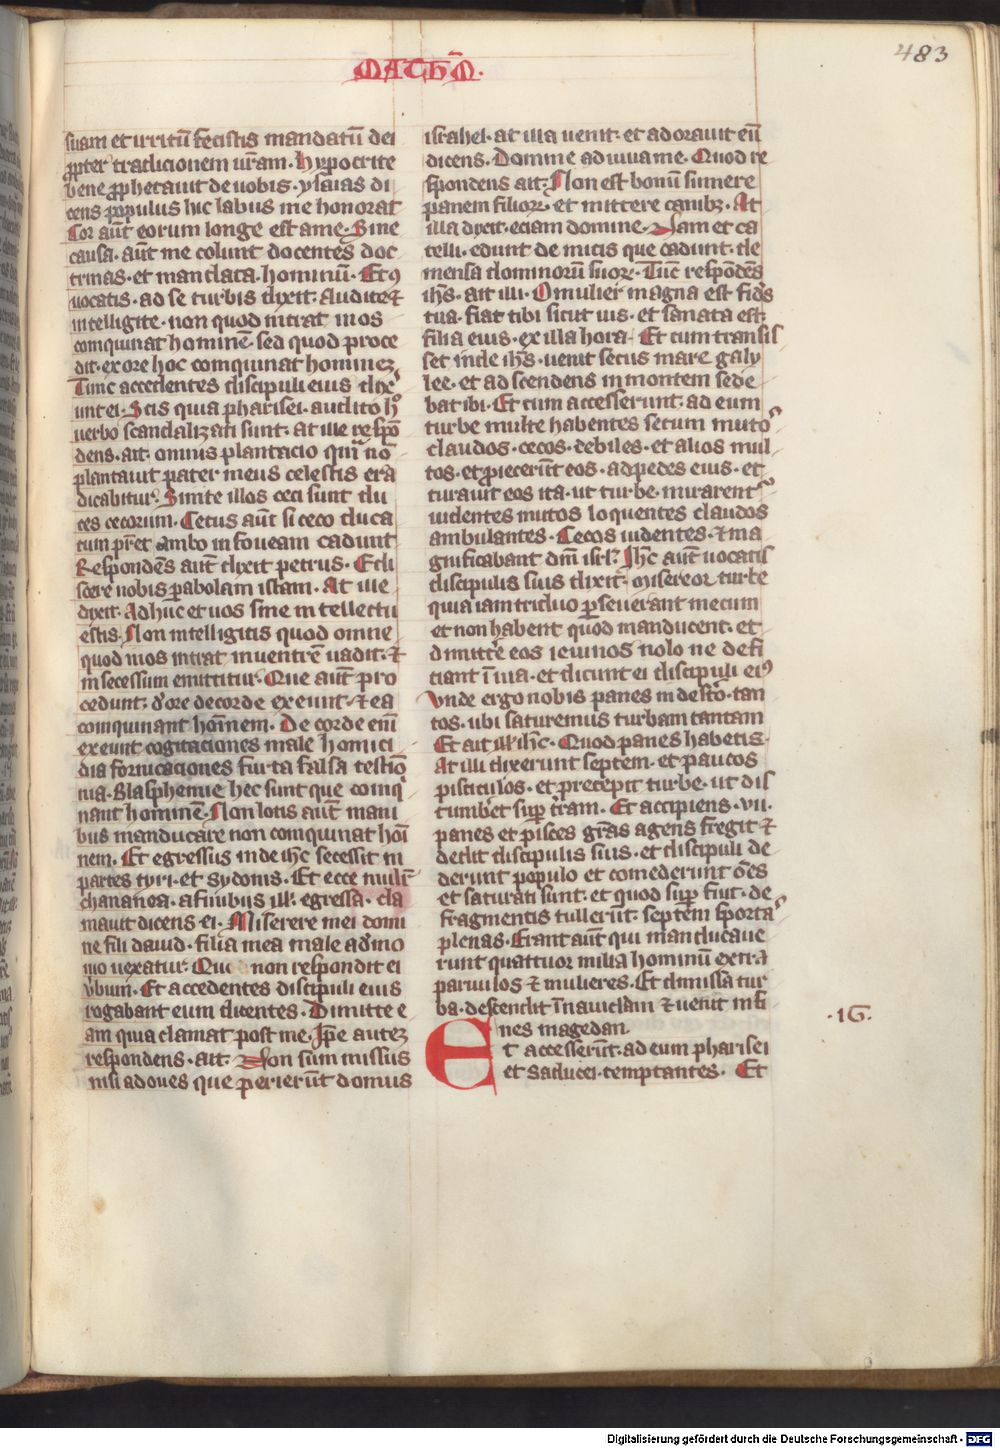 483
MATHM.
suam et irritū fecistis mandatū dei
ꝓpter tradicionem vr̄am. Hypocrite
bene ꝓphetauit de uobis. ysaias di
cens populus hic labiis me honorat
Cor aūt eorum longe est a me. Sine
causa. aūt me colunt docentes doc
trinas. et mandata. hominū. Et ꝯ
uocatis. ad se turbis dixit. Audite ⁊
intelligite. non quod intrat in os
comquinat hominē. sed quod proce
dit. ex ore hoc comquinat hominez
Tunc accedentes discipuli eius dixer
unt ei. Scis quia pharisei. audito hͦ
uerbo scandalizati sunt. at ille respō
dens. ait. omnis plantacio quā nō
plantauit pater meus celestis era
dicabitur. Sinite illos ceci sunt du
ces cecorum. Cecus aūt si ceco duca
tum pret ambo in foueam cadunt
Respondēs aūt dixit petrus. Edi
scere nobis pabolam istam. At ille
dixit. Adhuc et uos sine intellectu
estis. Non intelligitis quod omne
quod in os intrat in uentrē uadit. ⁊
in secessum emittitur. Que aūt pro
cedunt. d' ore de corde exeunt. ⁊ ea
comquinant hoīnem. De corde enī
exeunt cogitaciones male homici
dia fornicaciones furta falsa testiō
nia. Blasphemie hec sunt que comq
nant hominem. Non lotis aūt mani
bus manducare non comquinat hoī
nem. Et egressus inde ihc secessit in
partes tyri. et sydonis. Et ecce muli
chananea. a finibus ill. egressa. cla
mauit dicens ei. Miserere mei domi
ne fili dauid. filia mea male a d'mo
nio uexatur. Qui non respondit ei
v'bum. Et accedentes discipuli eius
rogabant eum dicentes. Dimitte e
am quia clamat post me. Ipe autez
respondens. ait. Non sum missus
nisi ad oues que perierūt domus
israhel. at illa uenit. et adorauit eū
dicens. Domine adiuua me. Quod re
spondens ait. Non est bonū sumere
panem filioꝝ. et mittere canibꝫ. At
illa dixit. eciam domine. Nam et ca
telli. edunt de micis que cadunt. de
mensa dominorū suoꝝ. Tūc respōdēs
ihs. ait illi. O mulier magna est fides
tua. fiat tibi sicut uis. et sanata est.
filia eius. ex illa hora. Et cum transis
set inde ihs. uenit secus mare galy
lee. et ascendens in montem sede
bat ibi. Et cum accesserunt. ad eum
turbe multe habentes secum mutos
claudos. cecos. debiles. et alios mul
tos. et piecerūt eos. ad pedes eius. et
curauit eos ita. ut turbe. mirarent
uidentes mutos loquentes claudos
ambulantes. Cecos uidentes. ⁊ ma
gnificabant dm̄ isrl. Ihc aūt uocatis
discipulis suis dixit. misereor turbe
quia iam triduo pseuerant mecum
et non habent quod manducent. et
dimittre eos ieiunos nolo ne defi
ciant ī uia. et dicunt ei discipuli eiꝰ
Vnde ergo nobis panes in desto. tan
tos. ubi saturemus turbam tantam
Et ait ill. ihc. Quod panes habetis.
At illi dixerunt septem. et paucos
pisciculos. et precepit turbe. ut dis
cumbet sup tram. Et accipiens. vii.
panes et pisces gras agens fregit ⁊
dedit discipulis suis. et discipuli de
derunt populo et comederunt oēs
et saturati sunt. et quod supfiut. de
fragmentis tullerūt. septem sportas
plenas. Erant aūt qui manducaue
runt quattuor milia hominū extra
paruulos ⁊ mulieres. Et dimissa tur
ba. descendit ī nauiclam ⁊ uenit in fi
nes magedan.
Et accesserūt. ad eum pharisei
et saducei. temptantes. Et
.16.
Digitalisierung gefördert durch die Deutsche Forschungsgemeinschaft - DFG